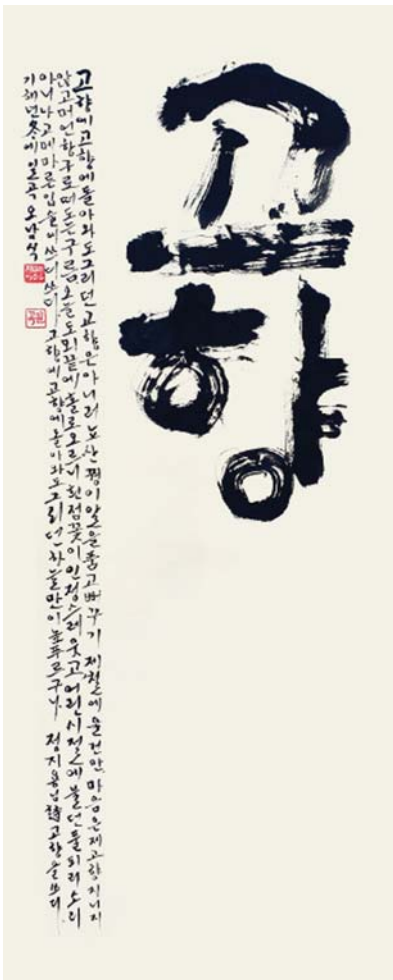 고향
고향에 고향에 돌아와도 그리던 고향은 아니러뇨 산꿩이 알을 품고 뻐꾸기 제철에 울건만 마음은 제고향 지니지
않고 머언 항구로 떠도는 구름 오늘도 뫼끝에 홀로 오르니 흰점꽃이 인정스레 웃고 어린시절에 불던 풀피리 소리
아니나고 메마른 입술에 쓰디쓰다 고향에 고향에 돌아와도 그리던 하늘만이 높푸르구나 정지용님 詩 고향을 쓰다
기해년 冬에 일곡 오남식